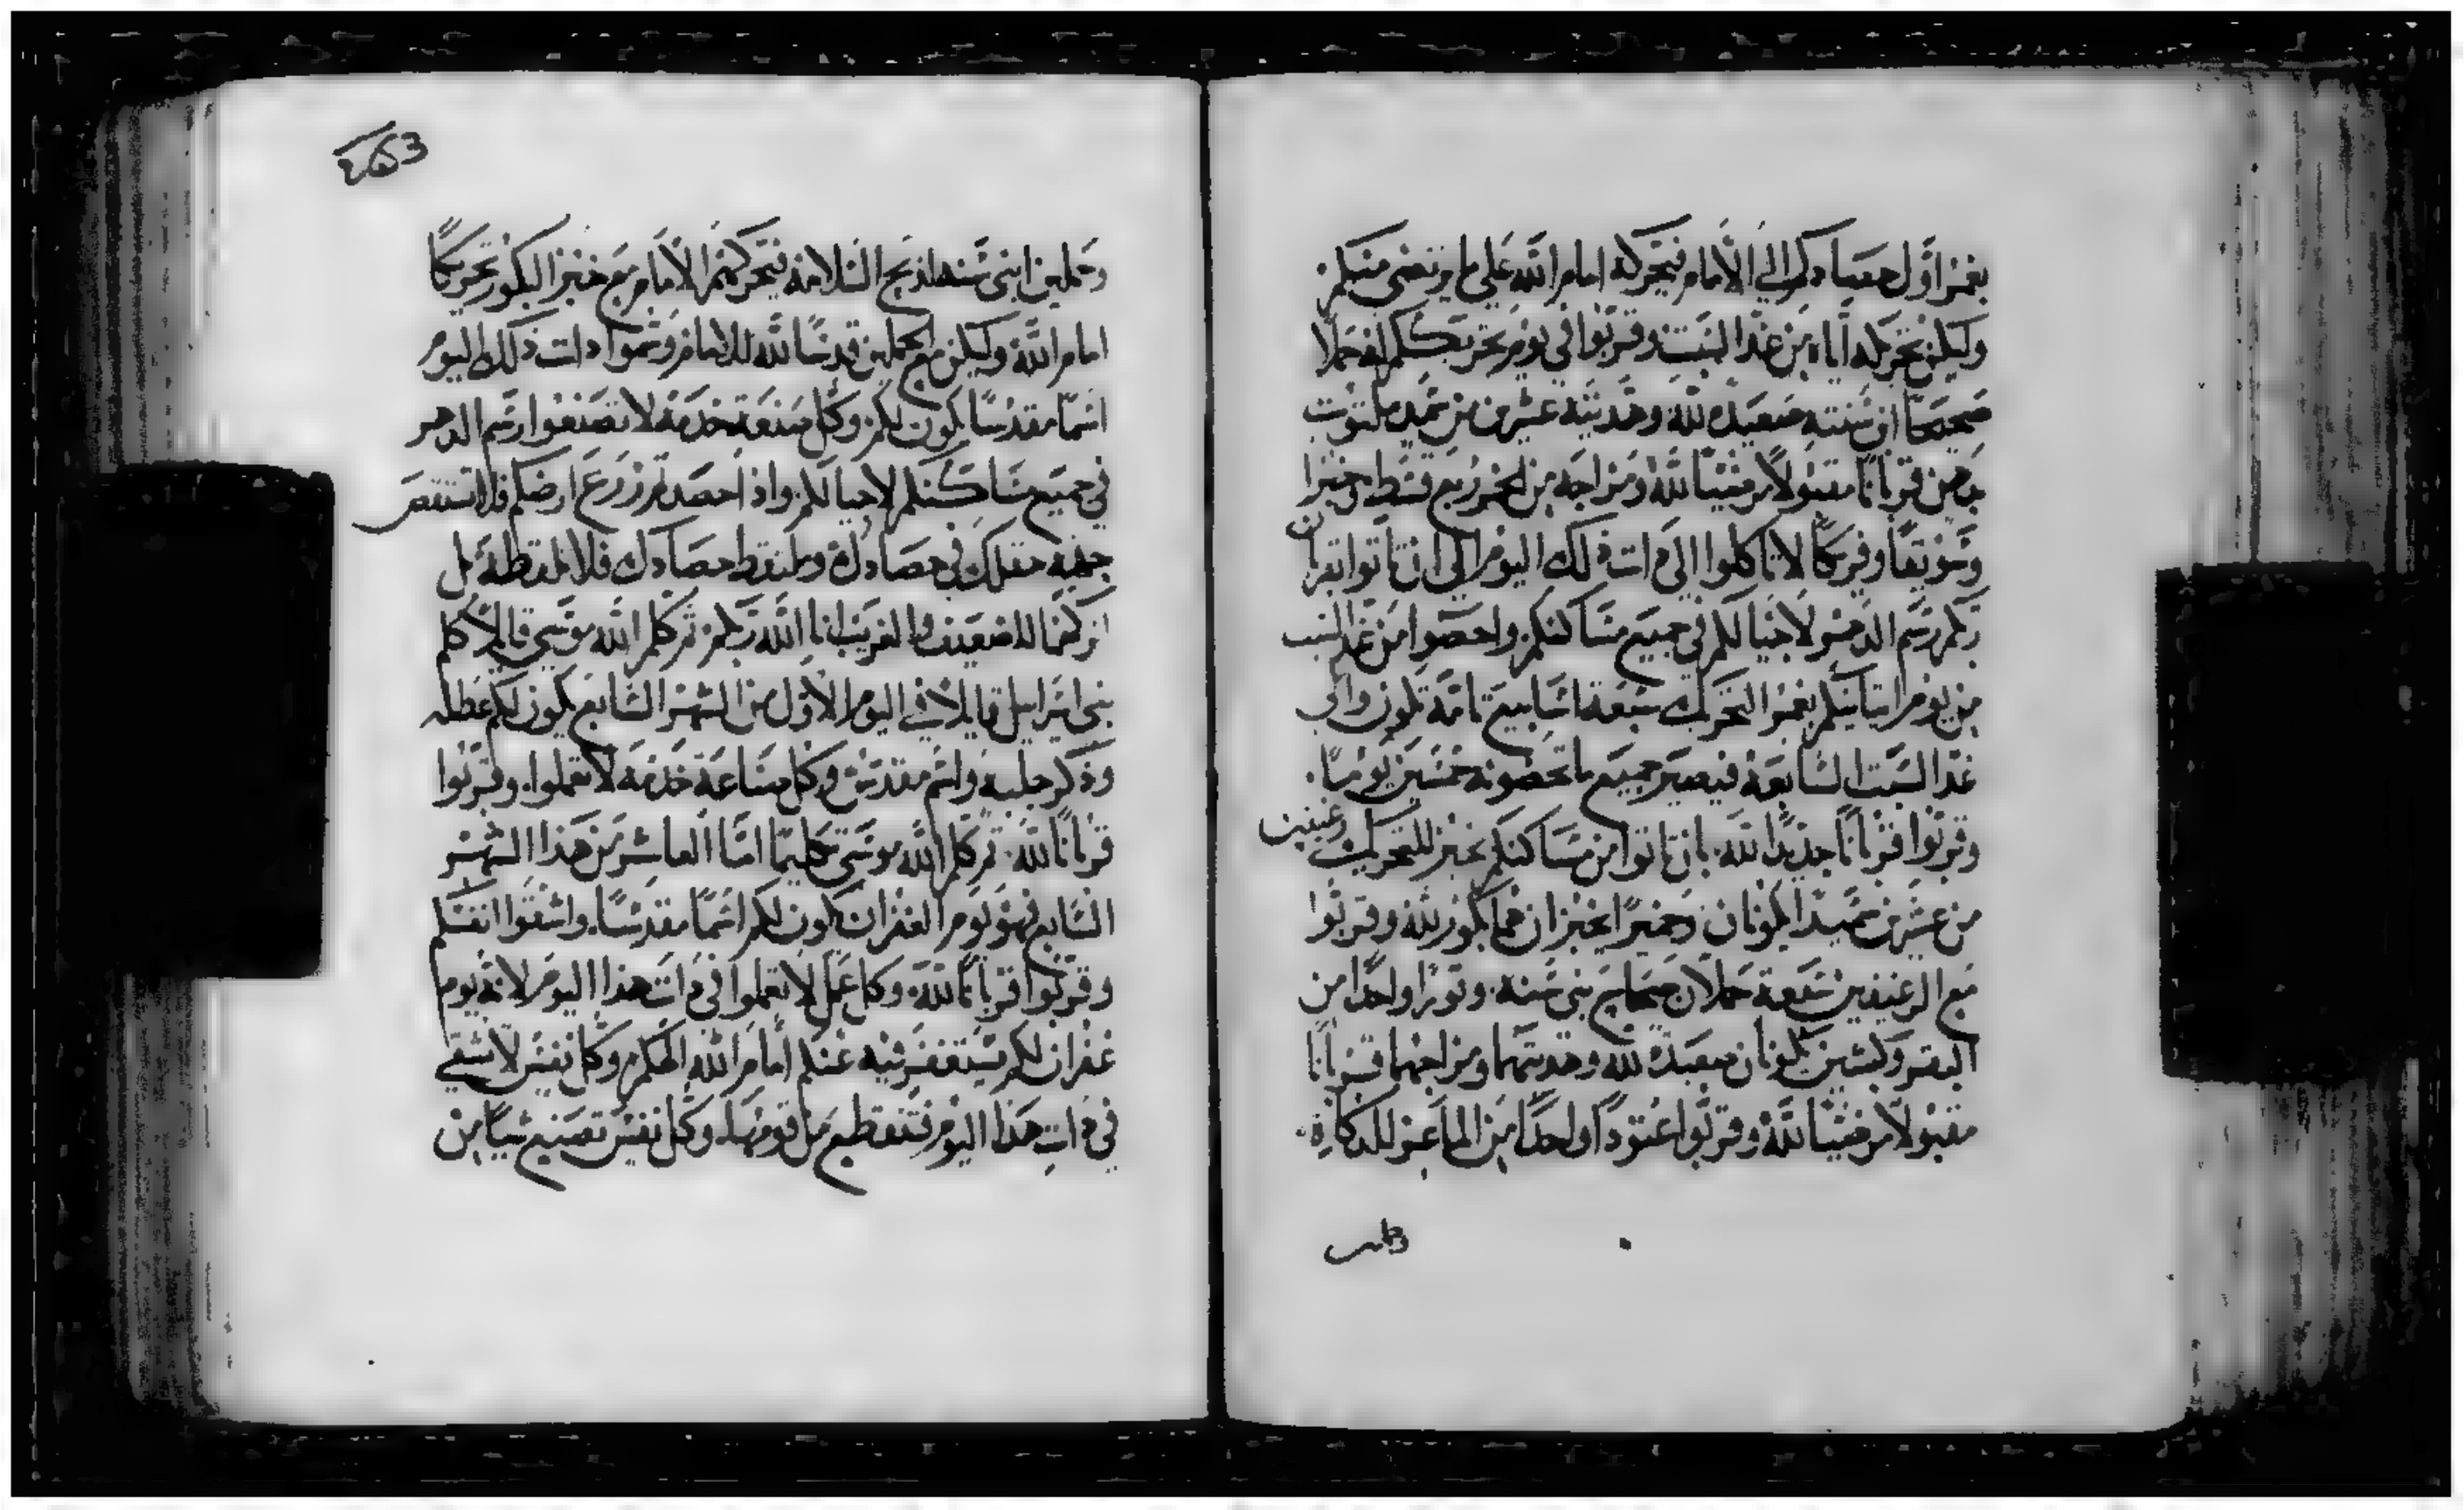 بغمر اول حصادكم الى الامام فيحركه امام الله على ما يرتضى منكم
وليكن تحريكه اياه من غد السبت وقربوا في يوم تحريككم له حملا
صحيحا ابن سنته صعيده لله وهديته عشرين من سميد ملتوت
بدهن قربانا مقبولا مرضيا لله ومزاجه من الخمر ربع قسط وخبزا
وسويقا وفريكا لا تاكلوا الى ذات ذلك اليوم الى ان تاتوا بقربان
ربكم رسم الدهر لاجيالكم في جميع مساكنكم واحصوا من غد السبت
من يوم اتيانكم بغمر التحريك سبعة اسابيع تامة تكون والى
غد السبت السابعة فيصير جميع ما تحصونه خمسين يوما
وقربوا قربانا جديدا لله بان تاتوا من مساكنكم بخبز للتحريك رغيفين
من عشرين سميدا يكونان وخميرا يخبزان فهما بكور لله وقربوا
مع الرغيفين سبعة حملان صحاح بني سنه وثورا واحدا من
البقر وكبشين يكونان صعيده لله وهديتهما ومزاجهما قربانا
مقبولا مرضيا لله وقربوا عتودا واحدا من الماعز للذكاة
وحملين ابنى سنه لذبح السلامة فيحركهم الامام مع خبز البكور تحريكا
امام الله وليكن مع الحملين قدسا لله للامام وسموا ذات ذلك اليوم
اسما مقدسا يكون لكم وكل صنعة خدمة لا تصنعوا رسم الدهر
في جميع مساكنكم لاجيالكم واذا حصدتم زرع ارضكم فلا تستقص
جهة حقلك في حصادك ولقط حصادك فلا تلقطه بل
اتركهما للضعيف والغريب انا الله ربكم ثم كلم الله موسى قايلا كلم
بني اسرايل قايلا في اليوم الاول من الشهر السابع يكون لكم عطله
وذكر جلبة واسم مقدس وكل صناعة خدمة لا تعملوا وقربوا
قربانا لله ثم كلم الله موسى تكليما اما العاشر من هذا الشهر
السابع فهو يوم الغفران يكون لكم اسما مقدسا واشقوا انفسكم
وقربوا قربانا لله وكل عمل لا تعملوا في ذات هذا اليوم لانه يوم
غفران لكم يستغفر فيه عنكم امام الله الهكم وكل نفس لا تشقى
في ذات هذا اليوم فتنقطع من قومها وكل نفس تصنع شيا من